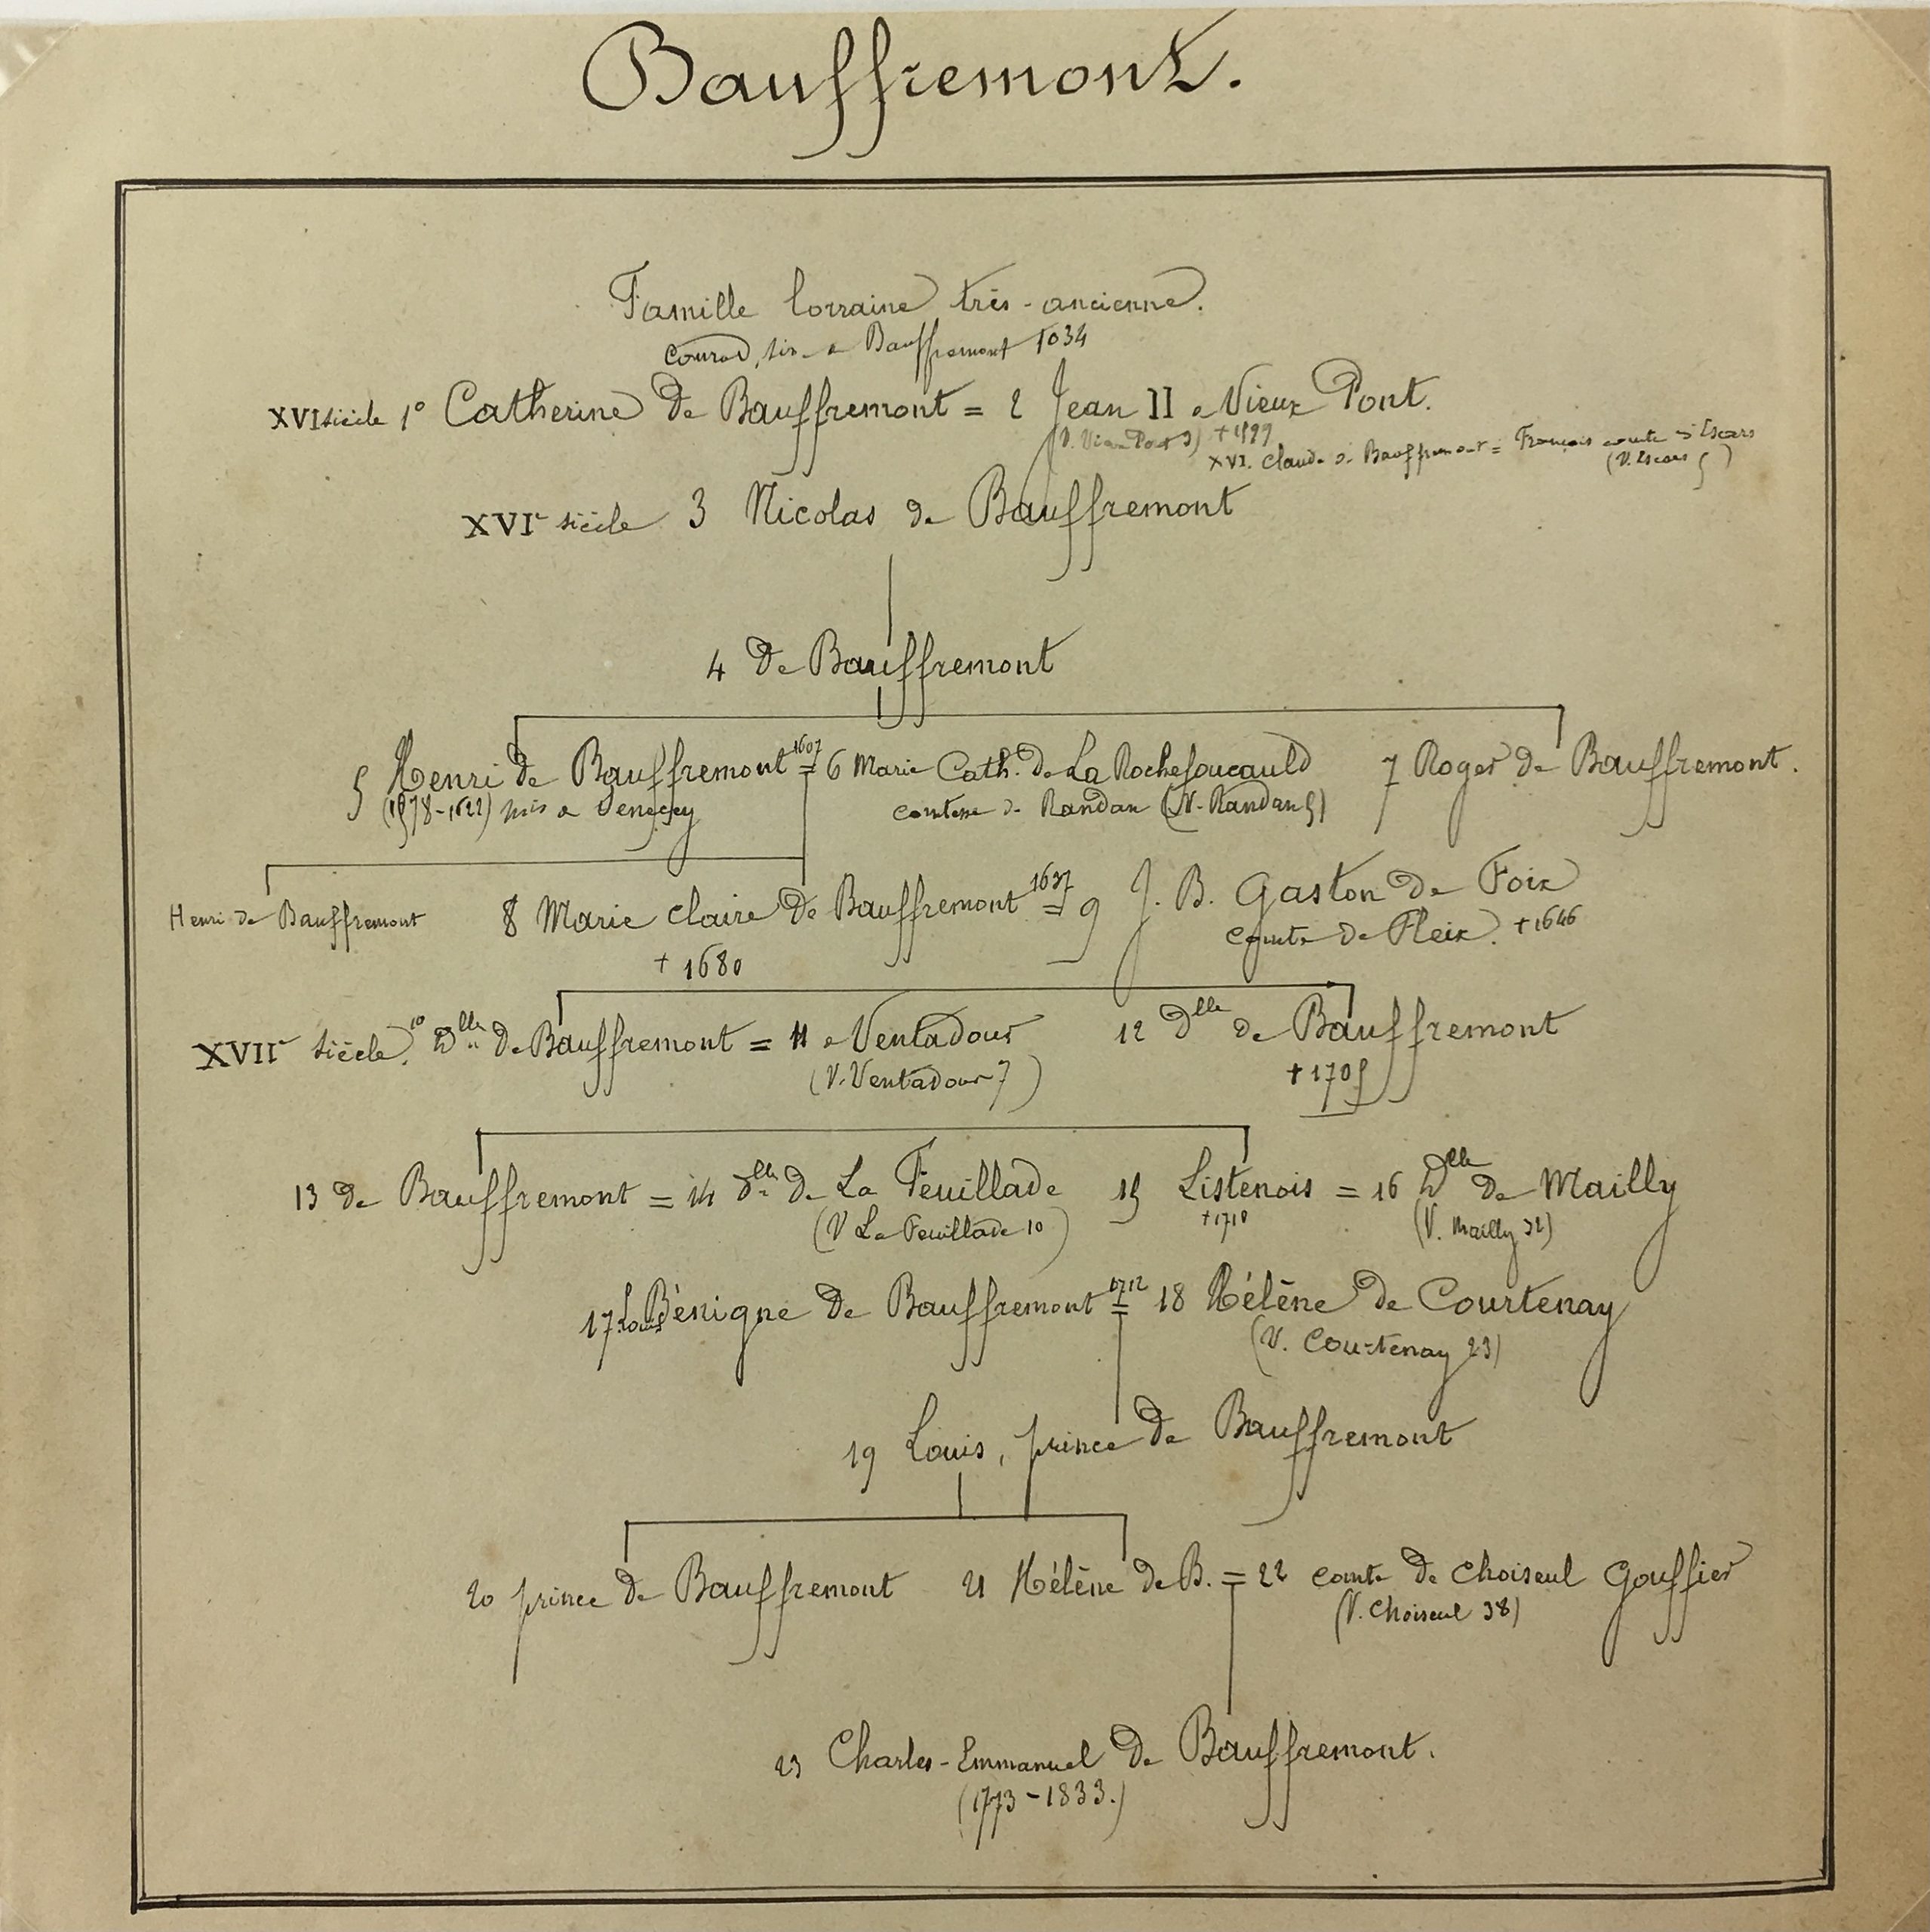 Bauffremont.
Famille lorraine très-ancienne.
Conrad, sir de Bauffremont 1034
XVI siècle 1° Catherine de Bauffremont = 2 Jean II de Vieux Pont.
(V. Vieux Pont 9) +
XVI. Claude de Bauffremont = François comte d'Escars
(V. Escars 5)
XVIe siècle 3 Nicolas de Bauffremont
4 de Bauffremont
5 Henri de Bauffremont 1607 = 6 Marie Cath. de La Rochefoucauld 7 Roger de Bauffremont.
(1578-1622) mis de Senecey comtesse de Randan (V. Randan 5)
Henri de Bauffremont 8 Marie Claire de Bauffremont 1637 = 9 J. B. Gaston de Foix
+ 1680 comte de Fleix. + 1646
XVIIe siècle. 10 Dlle de Bauffremont = 11 de Ventadour 12 Dlle de Bauffremont
(V. Ventadour 7) + 1705
13 de Bauffremont = 14 Dlle de La Feuillade 15 Listenois = 16 Dlle de Mailly
(V La Feuillade 10) +1710 (V. Mailly 32)
17 Louis Bénigne de Bauffremont 1712 = 18 Hélène de Courtenay
(V. Courtenay 23)
19 Louis, prince de Bauffremont
20 prince de Bauffremont 21 Hélène de B. = 22 comte de Choiseul Gouffier
(V. Choiseul 38)
23 Charles-Emmanuel de Bauffremont.
(1773-1833.)